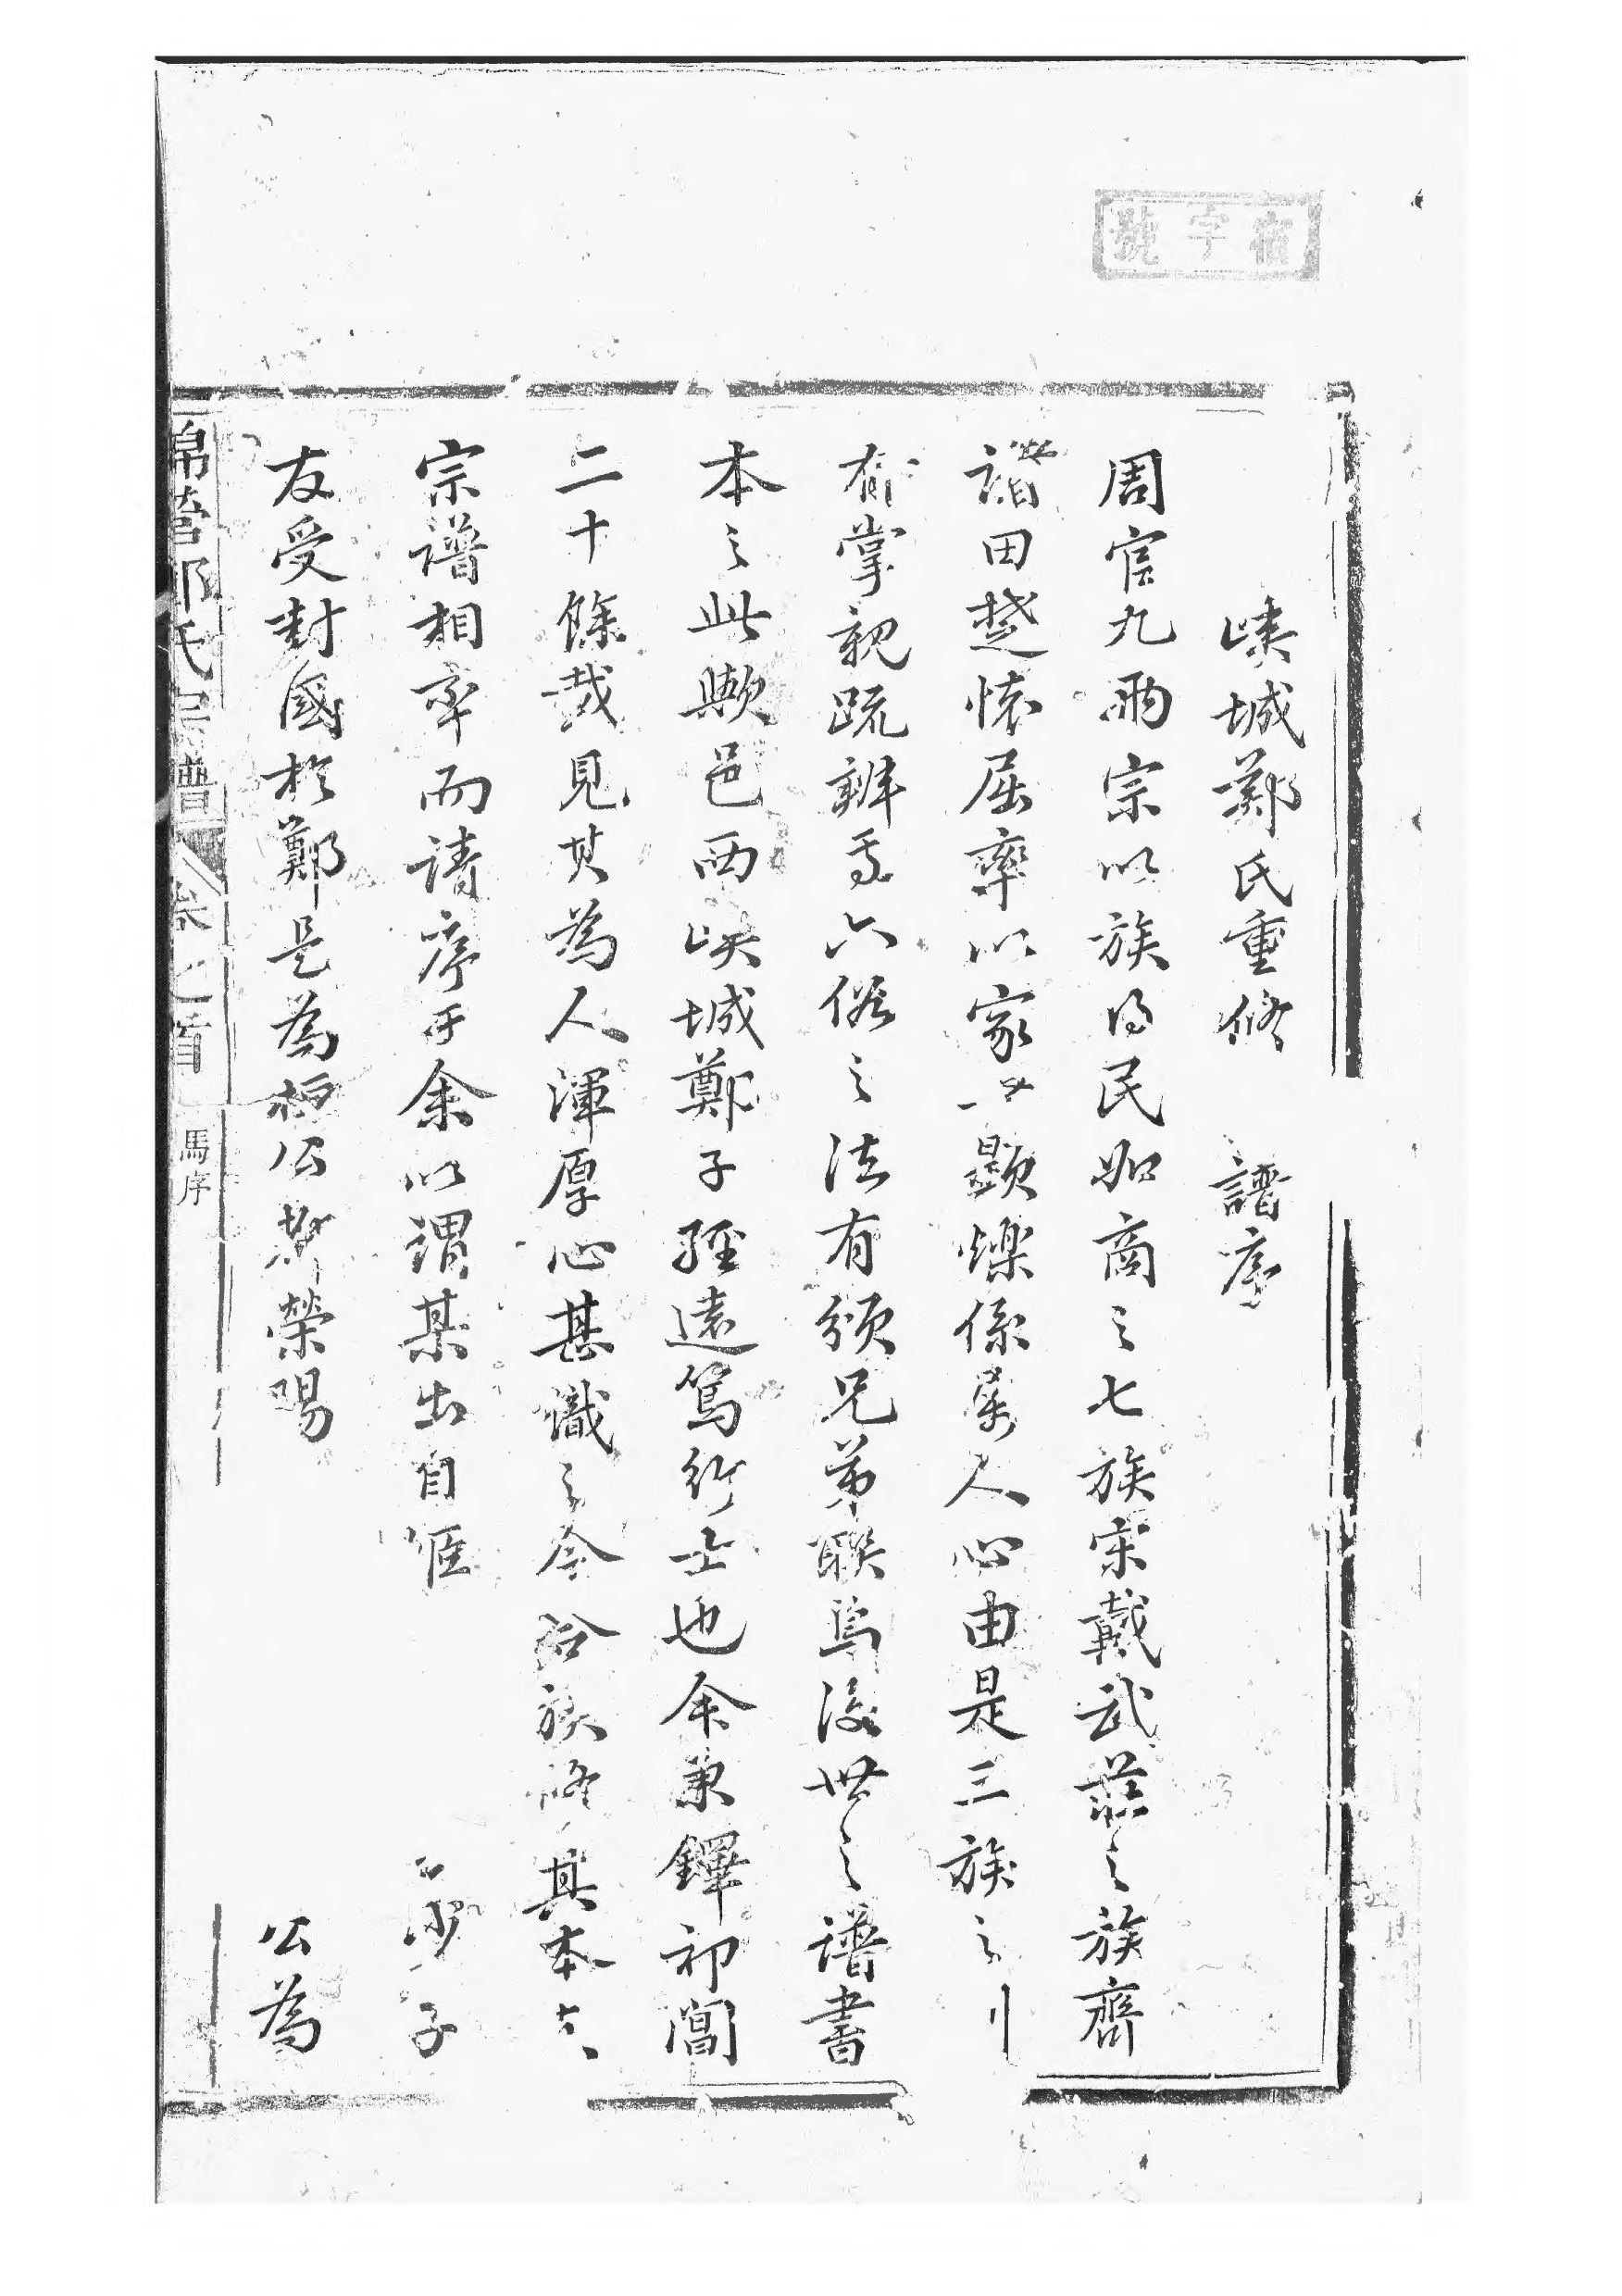 宿字號
嵊城鄭氏重修譜序
周官九兩宗以族得民如商之七族宋戴武莊之族齊
諸田楚懷屈率以家世顯爍係屬人心由是三族之
有掌親疏辨焉六俗之法有頒兄弟聯焉後世之譜書
本之此歟邑西崊城鄭子經遠篤行士也余秉鐸初聞
二十餘哉見其為人渾厚心甚識之今合族修其本支
宗譜相率而請序于余以謂某出自 子
友受封國於鄭是為桓公 滎陽 公為
錦營鄭氏宗譜
卷之首
馬序